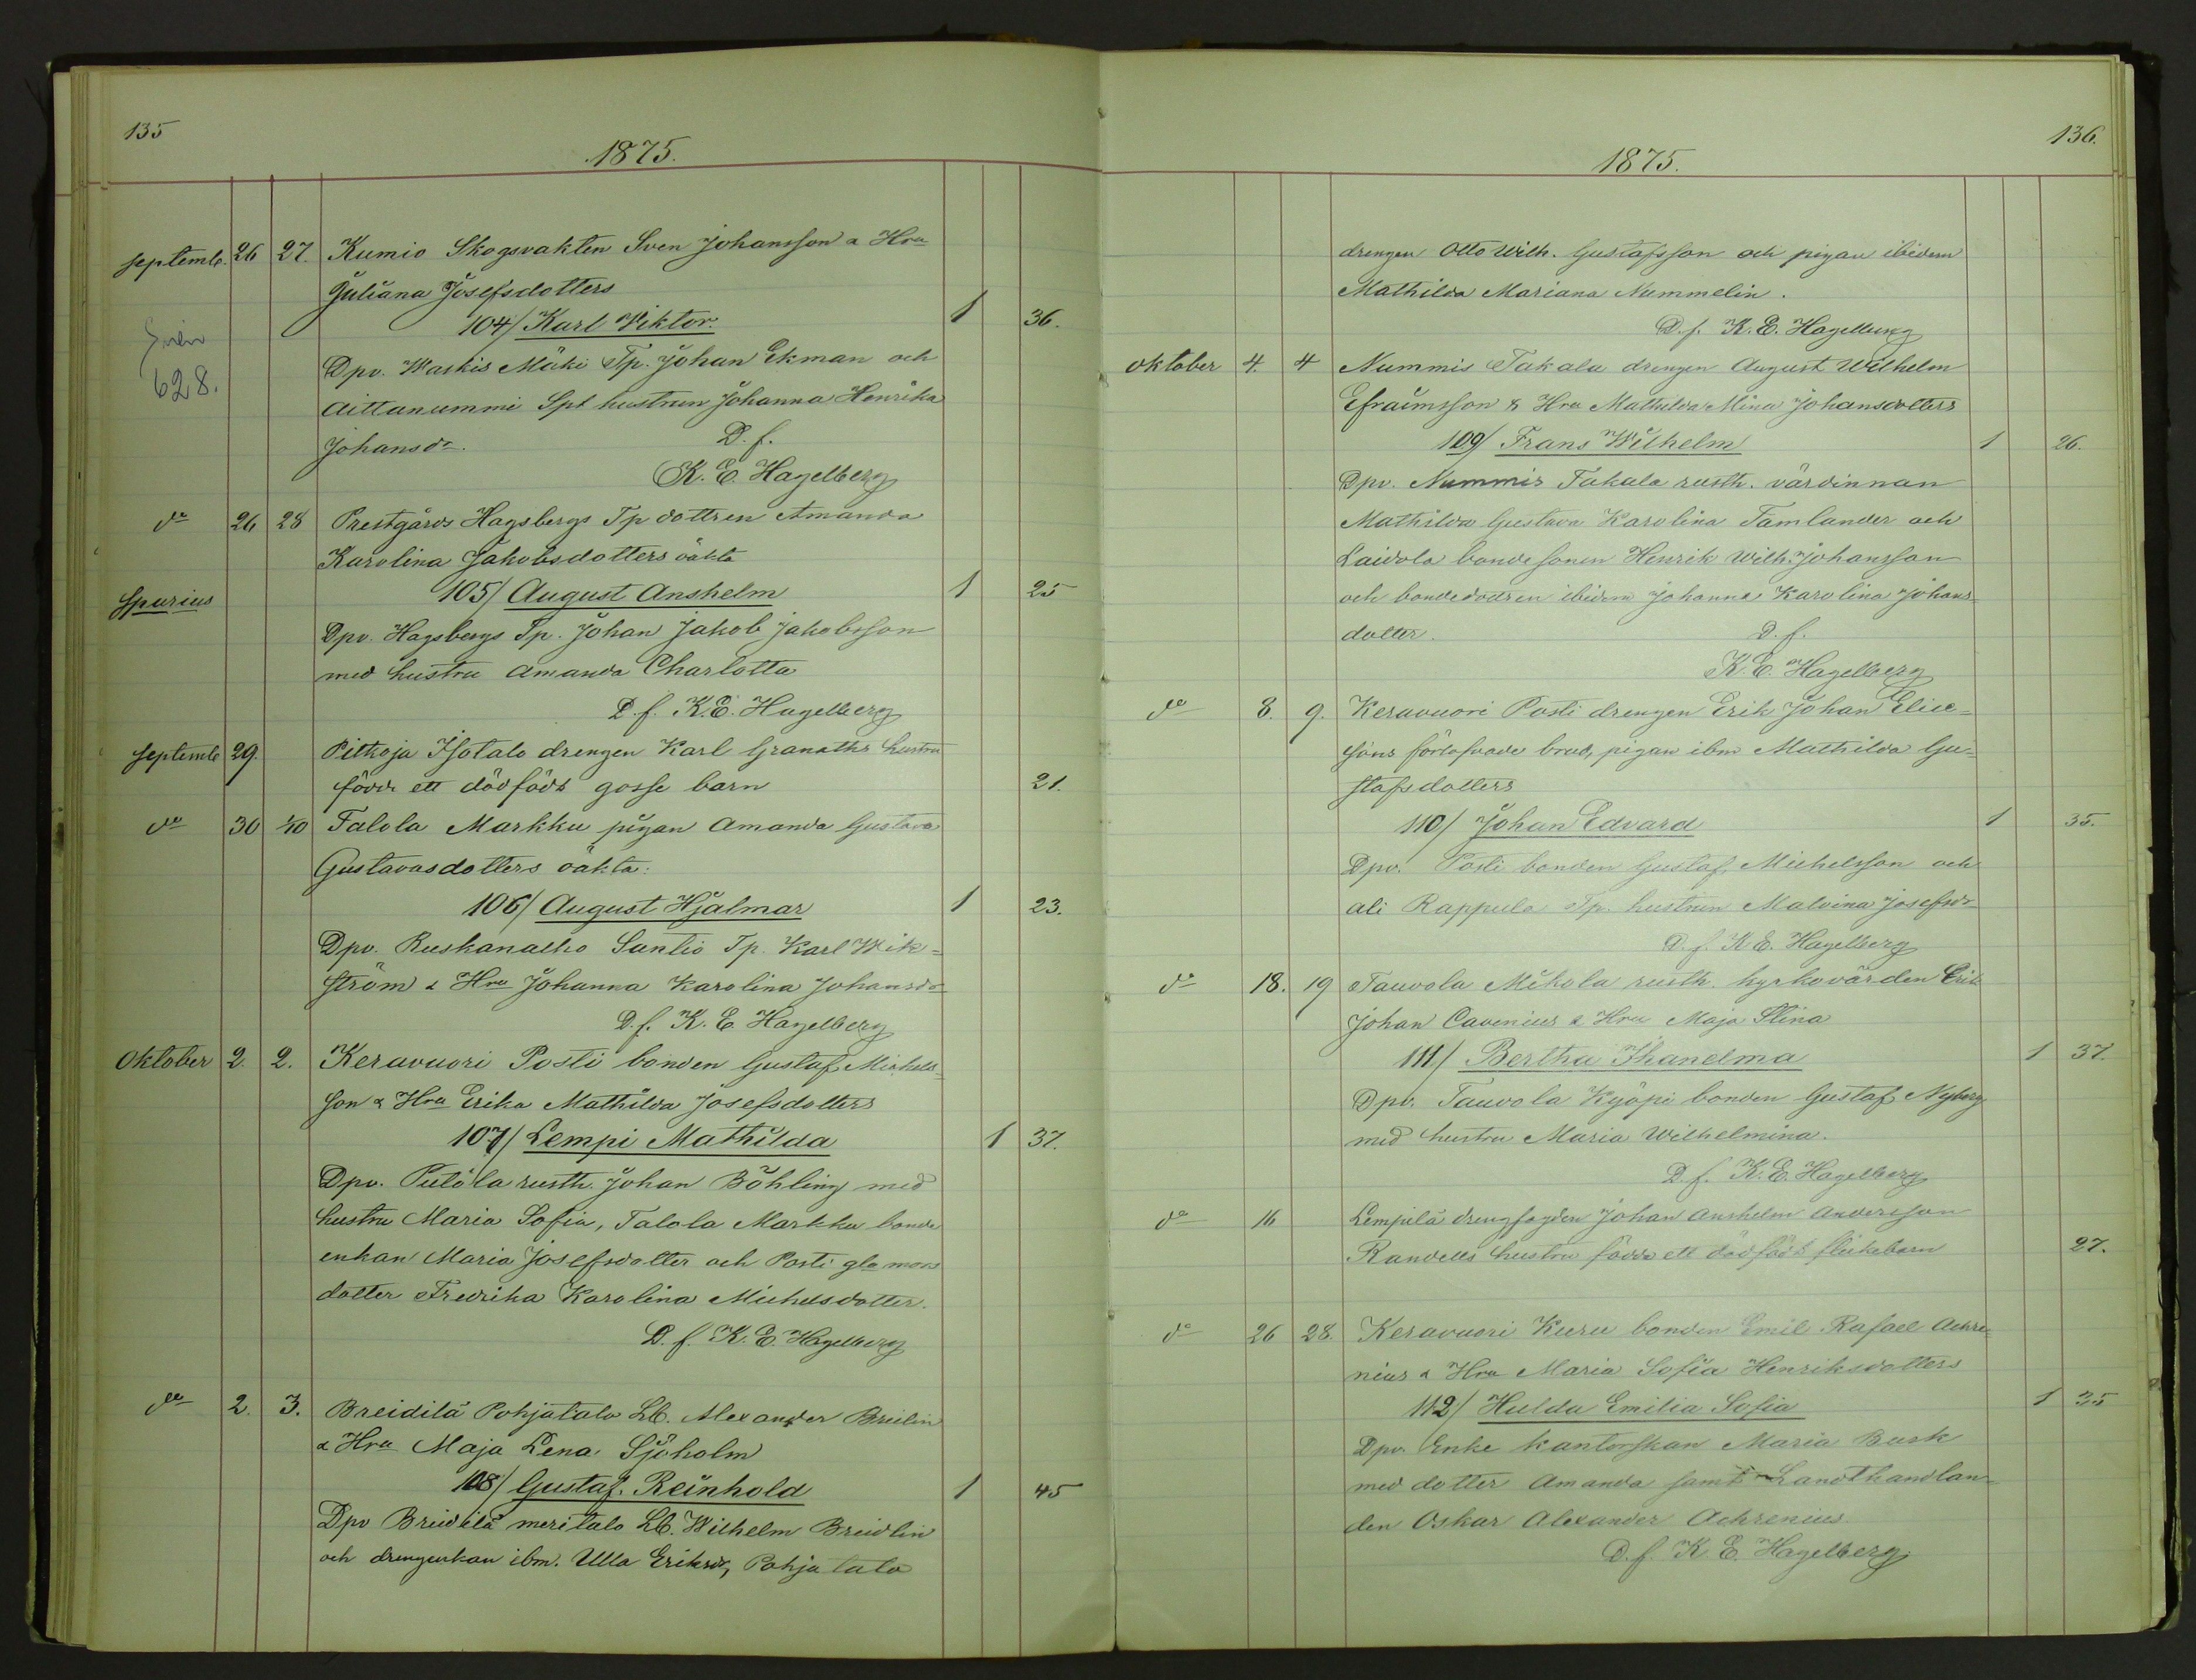 135
1875.
Septemb. 26 27. Kumio Skogsvakten Sven Johansson & Hru
Juliana Josefsdotters
104/ Karl Viktor. 1 36.
628.
Dpv. Waskis Mäki Tp. Johan Ekman och
Aittanummi Spt hustrun Johanna Henrika
Johansdr. D. f.
K. E. Hagelberg
do 26 28 Prestgårds Hagsbergs Tp dottren Amanda
Karolina Jakobsdotters oäkta
Spurius 105/ August Anshelm 1 25
Dpv. Hagsbergs Tp. Johan Jakob Jakobsson
med hustru Amanda Charlotta
D. f. K. E. Hagelberg
Septemb 29. Pitkoja Isotalo drengen Karl Granoths hustru
födde ett dödfödt gosse barn 21.
do 30 1/10 Talola Markku pigan Amanda Gustava
Gustavasdotters oäkta:
106/ August Hjalmar 1 23.
Dpv. Ruskanalho Suntio Tp. Karl Wik-
ström & Hru Johanna Karolina Johansdr
D. f. K. E. Hagelberg
Oktober 2. 2. Keravuori Posti bonden Gustaf Michels-
son & Hru Erika Mathilda Josefsdotters
107/ Lempi Mathilda 1 37.
Dpv. Putöla rusth. Johan Böhling med
hustru Maria Sofia, Talola Markku bonde
enkan Maria Josefsdotter och Posti gla mors
dotter Fredrika Karolina Michelsdotter.
D. f. K. E. Hagelberg
do 2. 3. Breidilä Pohjatalo Lb. Alexander Breilin
& Hru Maja Lena Sjöholm
108/ Gustaf Reinhold 1 45
Dpv Breidilä meritalo Lb. Wilhelm Breidlin
och drengenkan ibm. Ulla Eriksdr, Pohjatalo
136.
1875.
drengen Otto Wilh. Gustafsson och pigan ibidem
Mathilda Mariana Nummelin.
D. f. K. E. Hagelberg
Oktober 4. 4 Nummis Takala drengen August Wilhelm
Efraimsson & Hru Mathilda Mina Johansdotters
109/ Frans Wilhelm 1 26.
Dpv. Nummis Takala rusth. värdinnan
Mathilda Gustava Karolina Tamlander och
Laidola bondesonen Henrik Wilh. Johansson
och bondedodren ibidem Johanna Karolina Johans-
dotter. D. f.
K. E. Hagelberg
do 8. 9. Keravuori Posti drengen Erik Johan Elie-
sons förlofvade brud, pigan ibm Mathilda Gu-
stafsdotters
110/ Johan Edvard 1 35.
Dpv. Posti bonden Gustaf Michelsson och
ali Rappula Tp. hustrun Malvina Josefsdr
D. f. K. E. Hagelberg
do 18. 19 Tauvola Mikola rusth. kyrkovärden Erik
Johan Cavenius & Hru Maja Stina
111/ Bertha Ihanelma 1 37.
Dpv. Tauvola Kyöpi bonden Gustaf Nyberg
med hustru Maria Wilhelmina.
D. f. K. E. Hagelberg
do 16 Lempilä drengfogden Johan Anshelm Andersson
Randells hustru födde ett dödfödt flickebarn 27.
do 26 28. Keravuori Kuru bonden Emil Rafael Achre-
nius & Hru Maria Sofia Henriksdotters
112/ Hulda Emilia Sofia 1 25
Dpv. Enke kantorskan Maria Busk
med dotter Amanda samt Landthandlan-
den Oskar Alexander Achrenius.
D. f. K. E. Hagelberg